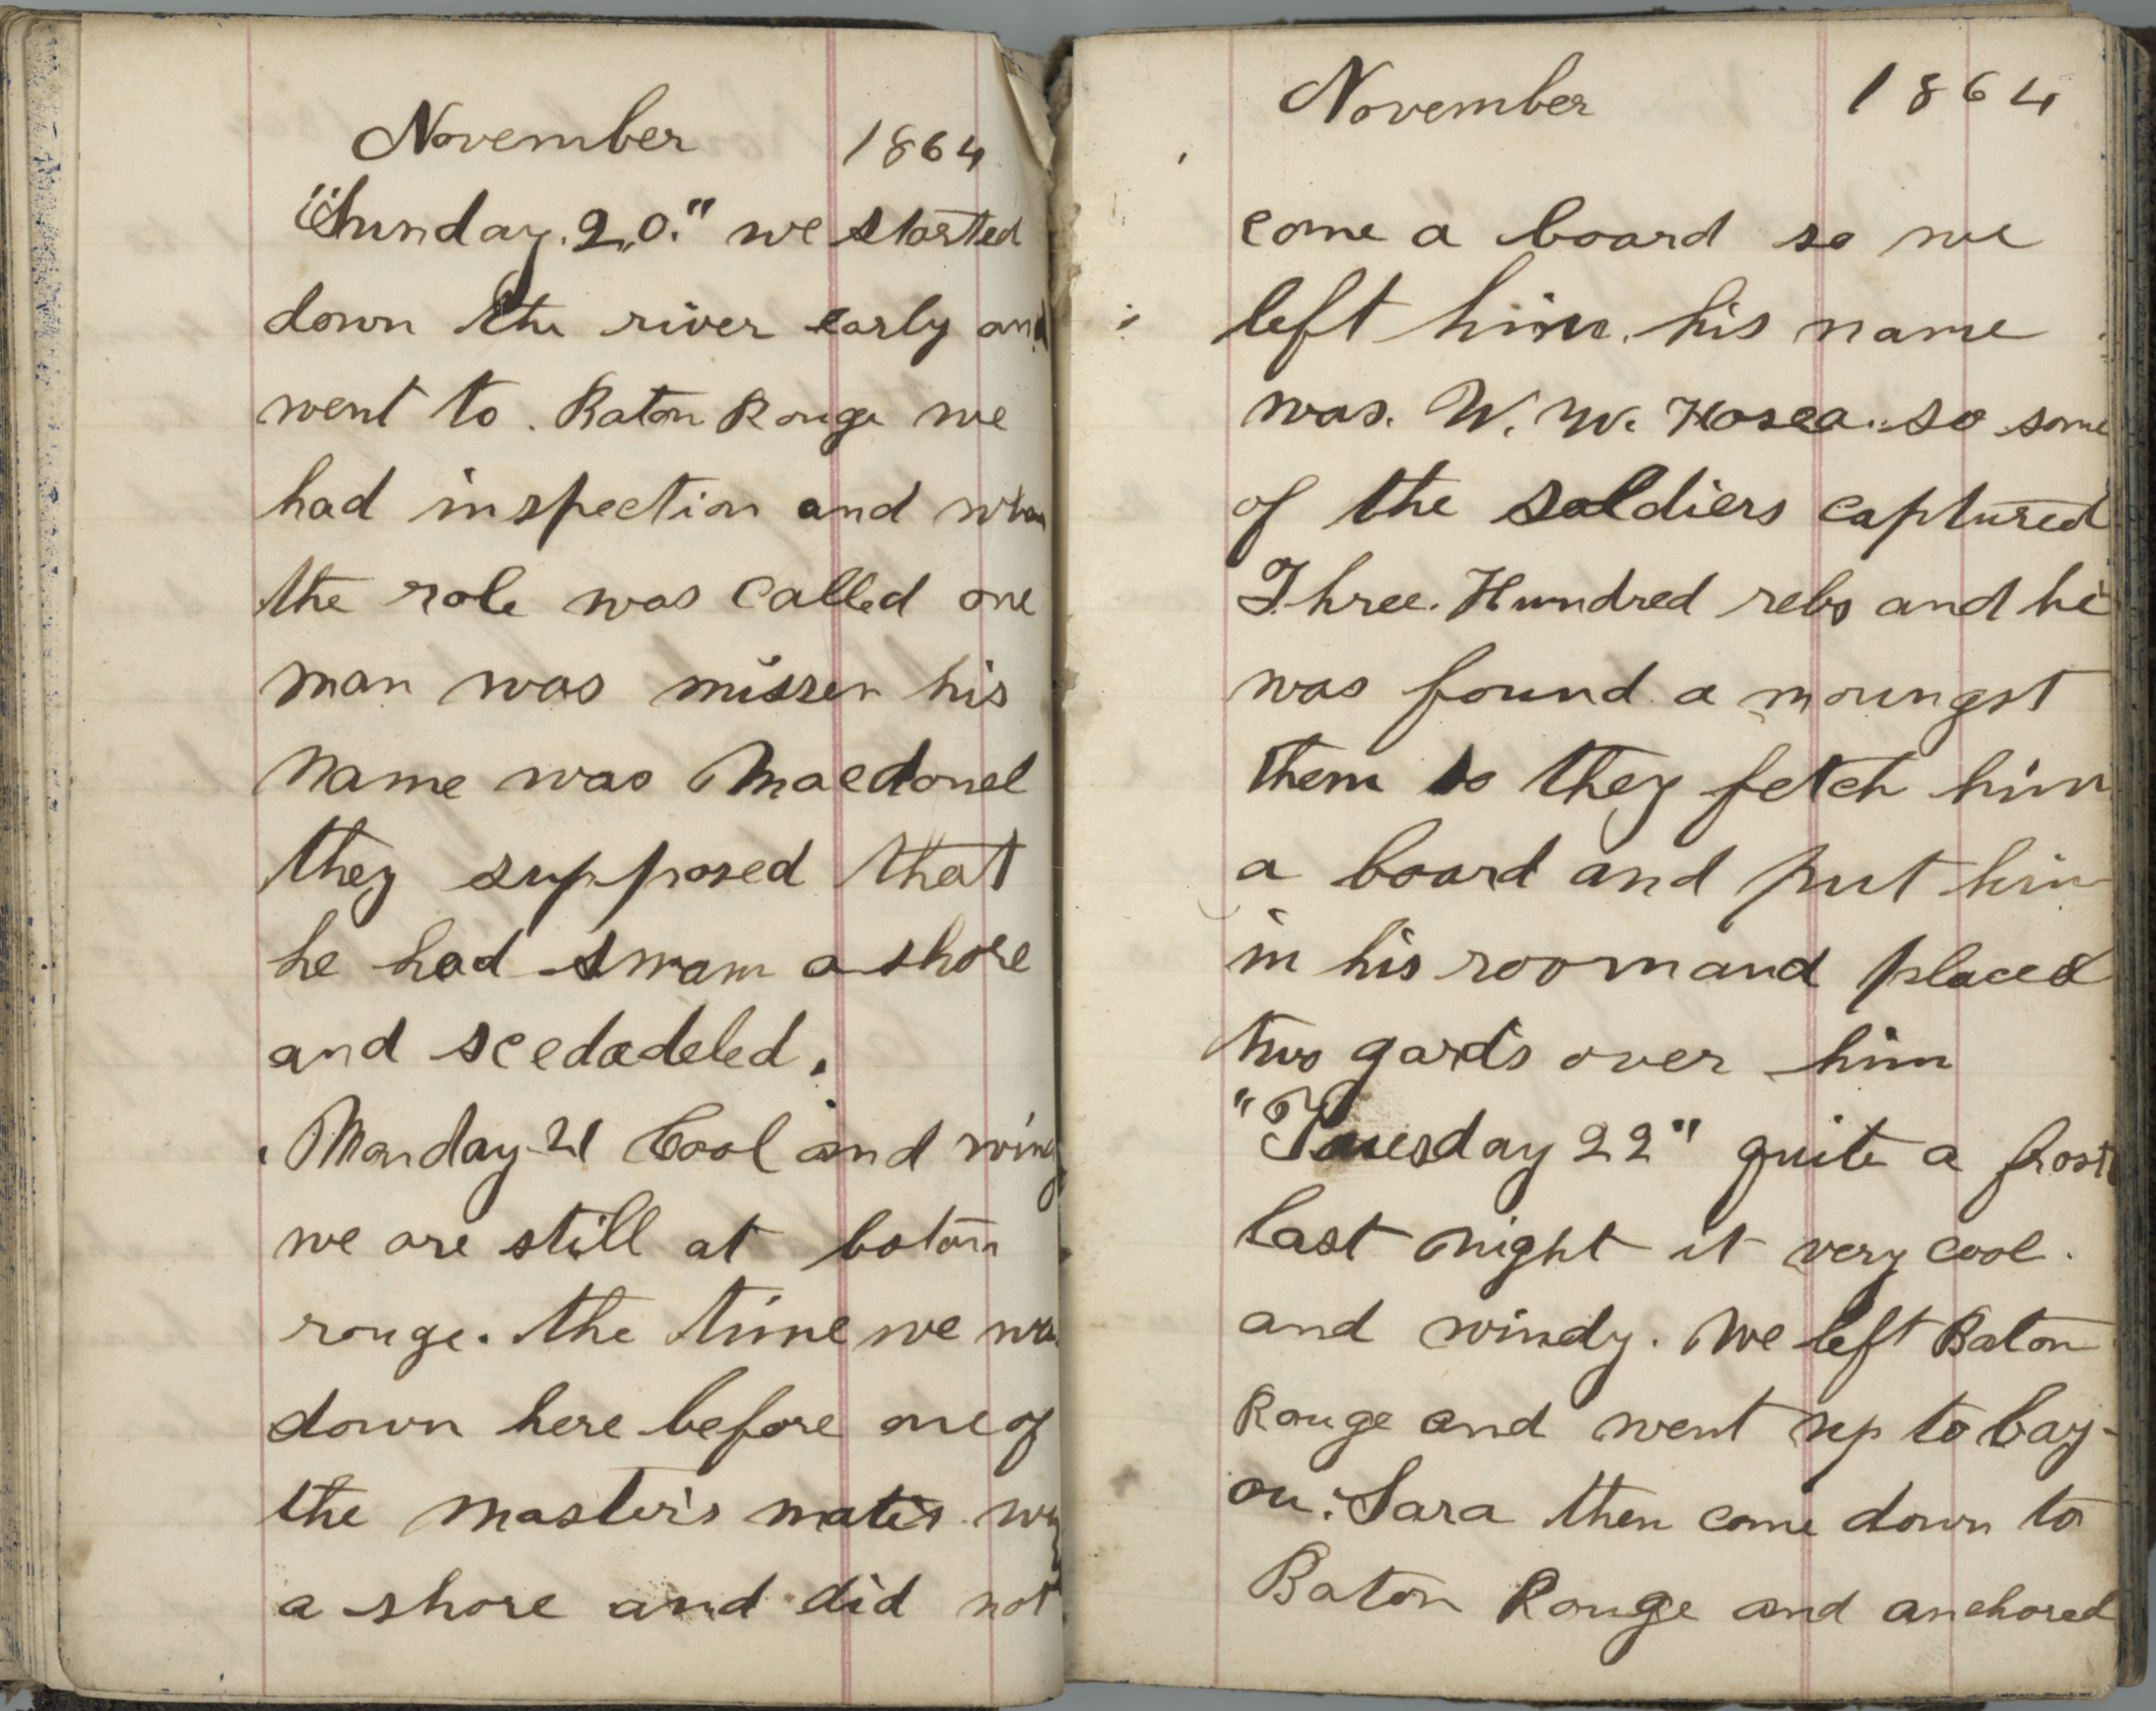 November 1864
"Sunday. 20." we started
down the river early and
went to. Baton Rouge we
had inspection and when
the role was called one
man was missen his
name was Macdonel
they supposed that
he had swam a shore
and scedadeled.
Monday 21 Cool and windy
we are still at baton
rouge. the time we was
down here before one of
the master's mates
a shore and did not
November 1864
come a board so we
left him. his name
was. W. W. Hosea. so some
of the soldiers captured
Three. Hundred rebs and he
was found a moungst
them so they fetch him
a board and put him
in his room and placed
two gards over him
"Tuesday 22" quite a frost
last night it very cool.
and windy. We left Baton
Rouge and went up to bay-
ou. Sara then come down to
Baton Rouge and anchored